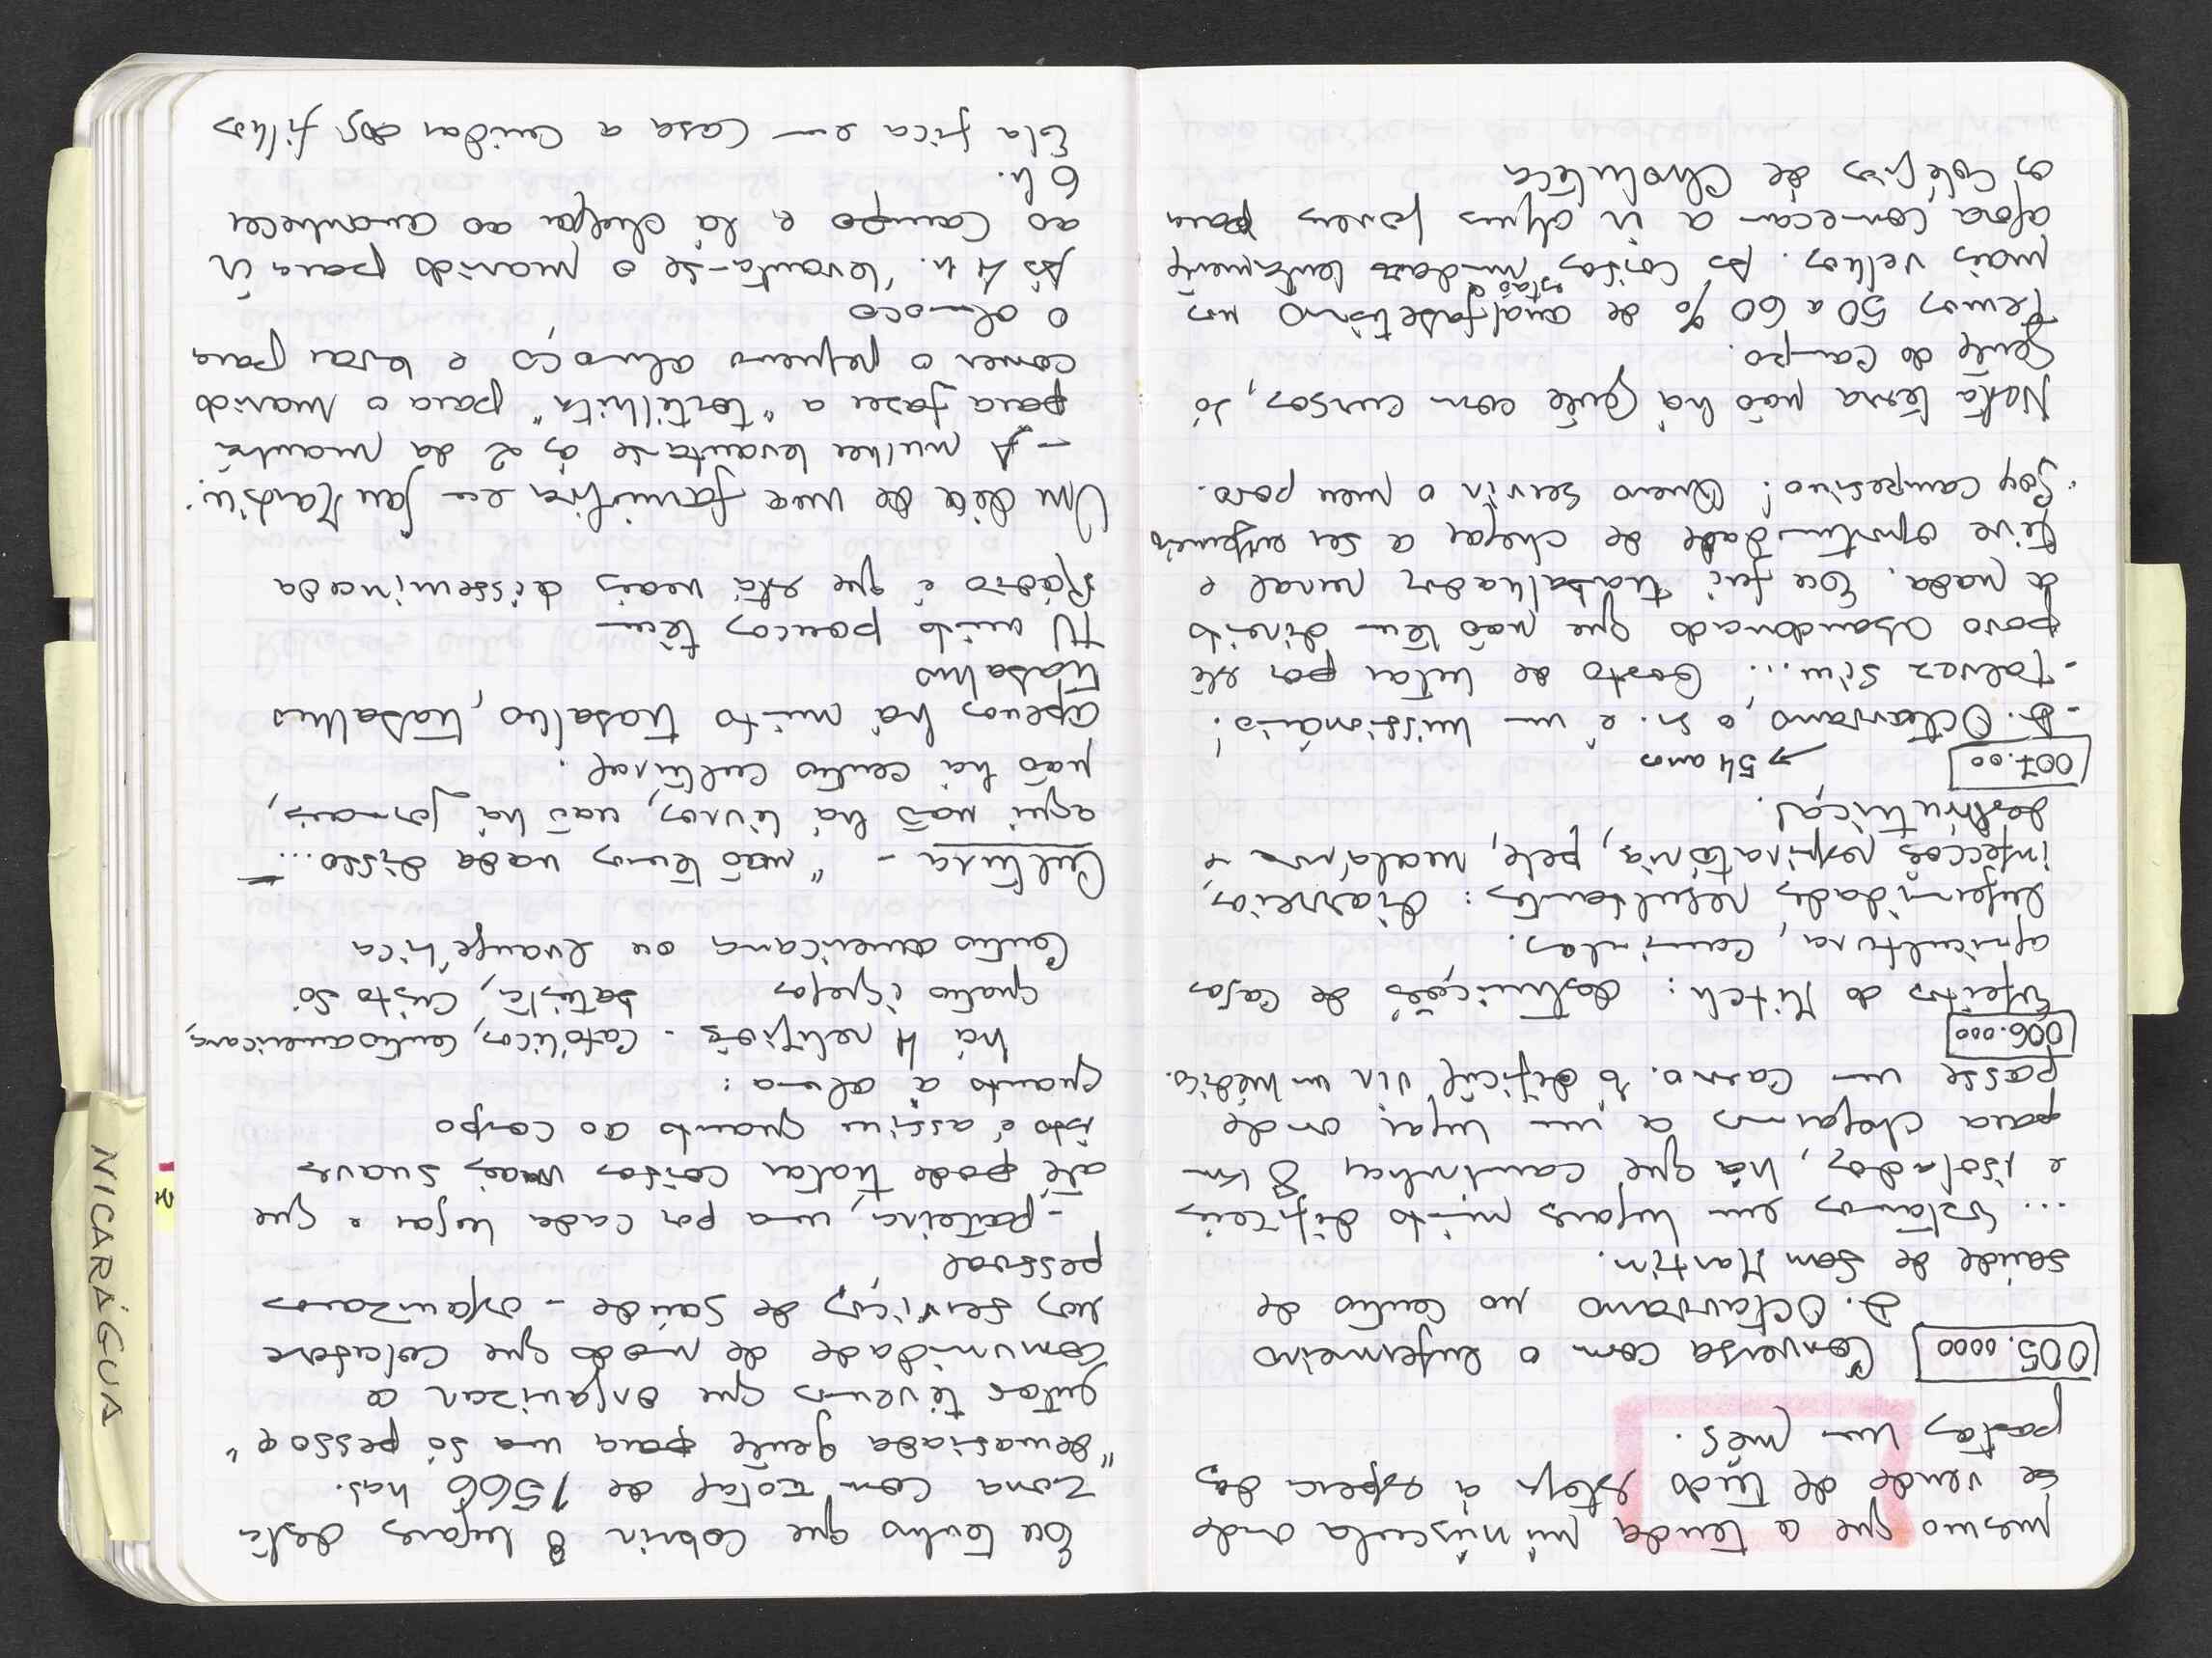 mesmo que a tenda minúscula onde
se vende de tudo esteja à espera das
pastas um mês.
005.0000 Conversa com o enfermeiro
D. Octaviano no Centro de
saúde de San Martin.
... Estamos em lugares muito difíceis
e isolados, há que caminhar 8 km
para chegarmos a um lugar onde
passe um carro. É difícil vir um médico.
006.000
Efeitos do Mitch: destruições de casas
agricultura, caminhos.
Enfermidades resultantes: diarreias,
infecções respiratória, pele, malária e
desnutrição.
007.00 → 54 anos
- D. Octaviano, o sr. é um missionário!
- Talvez sim... Gosto de lutar por este
povo abandonado que não tem direito
a nada. Eu fui trabalhador rural e
tive oportunidade de chegar a ser enfermeiro
"Soy campesino! Quero servir o meu povo.
Nesta terra não há gente com cursos, só
gente do campo.
Temos 50 a 60 % de analfabetismo nos
mais velhos. As coisas estão a mudar lentamente
agora começam a ir alguns jovens para
os colégios de Choluteca
Eu tenho que cobrir 8 lugares desta
zona com total de 1566 has.
"demasiada gente para uma só pessoa"
então tivemos que organizar a
comunidade de modo que colabore
nos serviços de saúde - organizamos
pessoal
- parteira, uma por cada lugar e que
até pode tratar coisas mais suaves
isto é assim quanto ao corpo
quanto à alma:
há 4 religiões - Católicos, Centroamericana,
quatro igrejas batista, Cristo só
Centro americana ou evangélica
Cultura - "não temos nada disso...
aqui não há livros, não há jornais,
não há centro cultural.
apenas há muito trabalho, trabalho
trabalho
TV muito poucos têm
Rádio é que está mais disseminada
Um dia de uma família em San Martin:
- A mulher levanta-se às 2 da manhã
para fazer a "tortillita" para o marido
comer o pequeno almoço e levar para
o almoço
Às 4 h. levanta-se o marido para ir
ao campo e lá chega ao amanhecer
6 h.
Ela fica em casa a cuidar dos filhos
NICARÁGUA